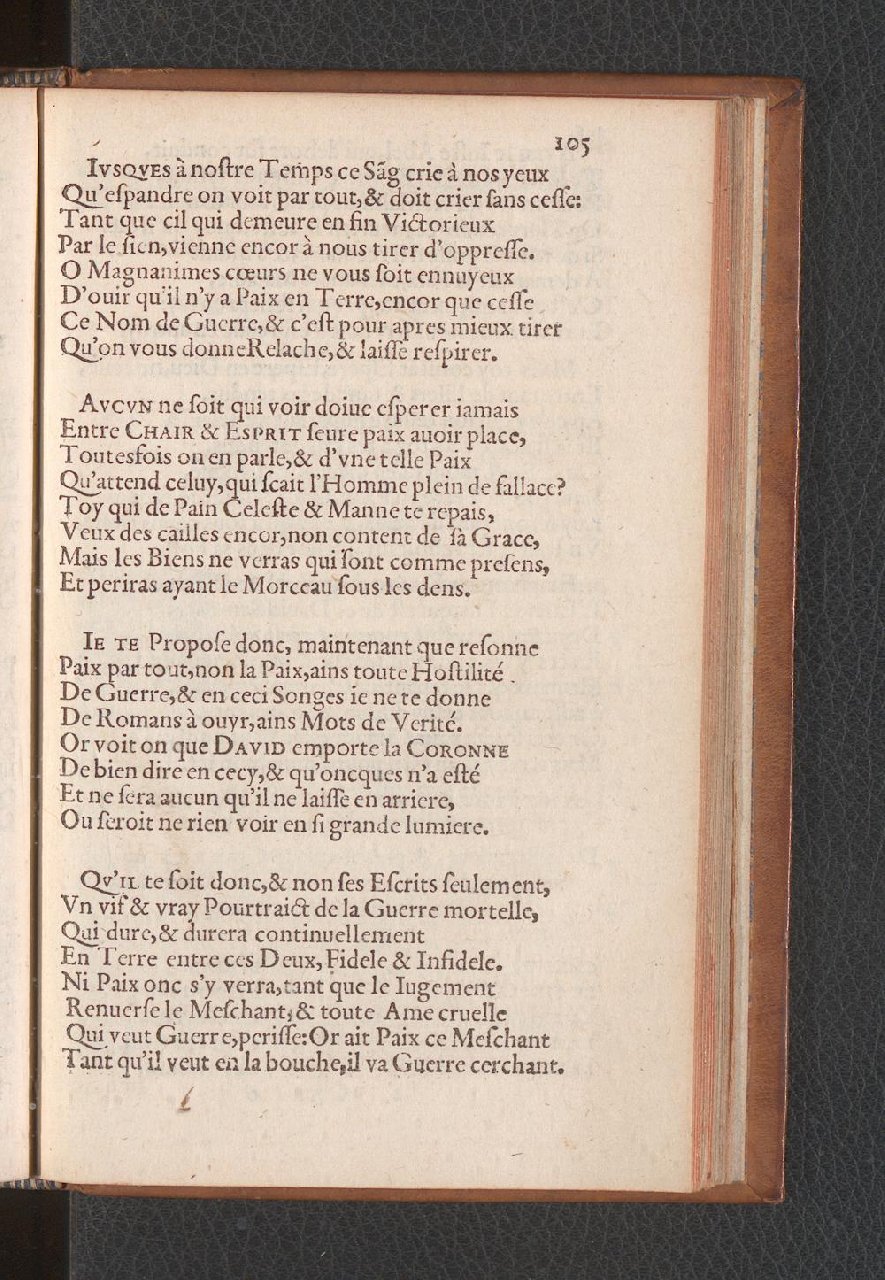 105
IVSQVES à noſtre Temps ce Sãg crie à nos yeux
Qu'eſpandre on voit par tout, & doit crier ſans ceſſe:
Tant que cil qui demeure en fin Victorieux
Par le ſien, vienne encor à nous tirer d'oppreſſe.
O Magnanimes cœurs ne vous ſoit ennuyeux
D'ouir qu'il n'y a Paix en Terre, encor que ceſſe
Ce Nom de Guerre, & c'eſt pour apres mieux tirer
Qu'on vous donne Relache, & laiſſe reſpirer.
AVCVN ne ſoit qui voir doiue eſperer iamais
Entre CHAIR & ESPRIT ſeure paix auoir place,
Toutesfois on en parle, & d'vne telle Paix
Qu'attend celuy, qui ſcait l'Homme plein de fallace?
Toy qui de Pain Celeſte & Manne te repais,
Veux des cailles encor, non content de ſà Grace,
Mais les Biens ne verras qui ſont comme preſens,
Et periras ayant le Morceau ſous les dens.
IE TE Propoſe donc, maintenant que reſonne
Paix par tout, non la Paix, ains toute Hoſtilité
De Guerre, & en ceci Songes ie ne te donne
De Romans à ouyr, ains Mots de Verité.
Or voit on que DAVID emporte la CORONNE
De bien dire en cecy, & qu'oncques n'a eſté
Et ne ſera aucun qu'il ne laiſſe en arriere,
Ou ſeroit ne rien voir en ſi grande lumiere.
QV'IL te ſoit donc, & non ſes Eſcrits ſeulement,
Vn vif & vray Pourtraict de la Guerre mortelle,
Qui dure, & durera continuellement
En Terre entre ces Deux, Fidele & Infidele.
Ni Paix onc s'y verra, tant que le Iugement
Renuerſe le Meſchant, & toute Ame cruelle
Qui veut Guerre, periſſe: Or ait Paix ce Meſchant
Tant qu'il veut en la bouche, il va Guerre cerchant.